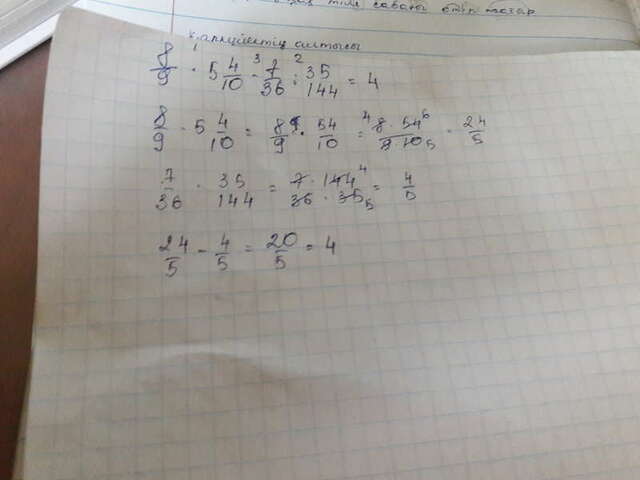 тіл сабағы өтіп жатар
қаңтардың алтысы
8/9 · 5 4/10 - 7/36 : 35/144 = 4
8/9 · 5 4/10 = 8/9 · 54/10 = 8 · 54/9 · 10 = 24/5
7/36 · 35/144 = 7 · 144/36 · 35 = 4/5
24/5 - 4/5 = 20/5 = 4